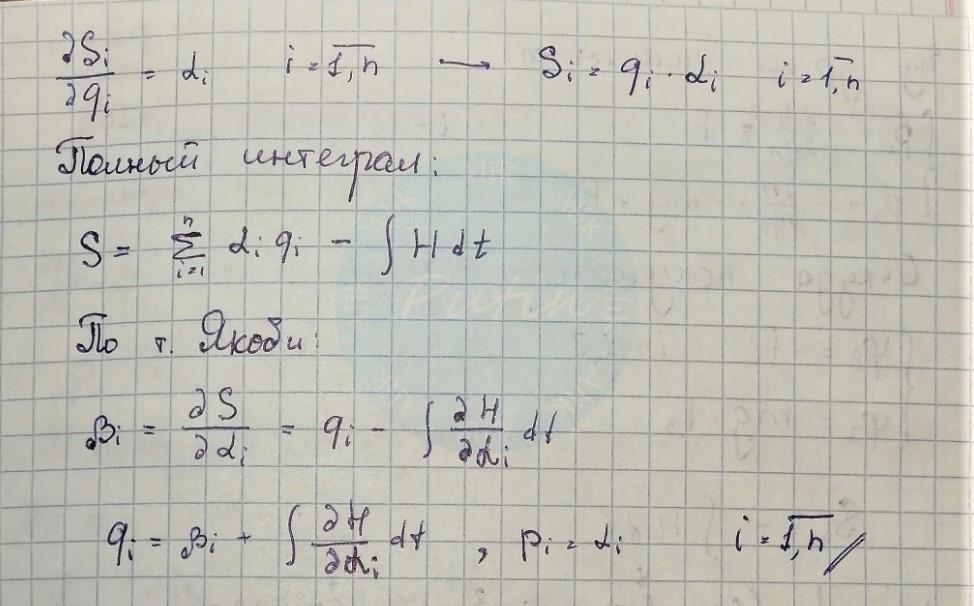 ∂Sᵢ/∂qᵢ = αᵢ i = 1,n → Sᵢ = qᵢ · αᵢ i = 1,n
Полный интеграл:
S = Σᵢ₌₁ⁿ αᵢ qᵢ - ∫ H dt
Putin
По т. Якоби:
βᵢ = ∂S/∂αᵢ = qᵢ - ∫ ∂H/∂αᵢ dt
qᵢ = βᵢ + ∫ ∂H/∂αᵢ dt , pᵢ = αᵢ i = 1,n